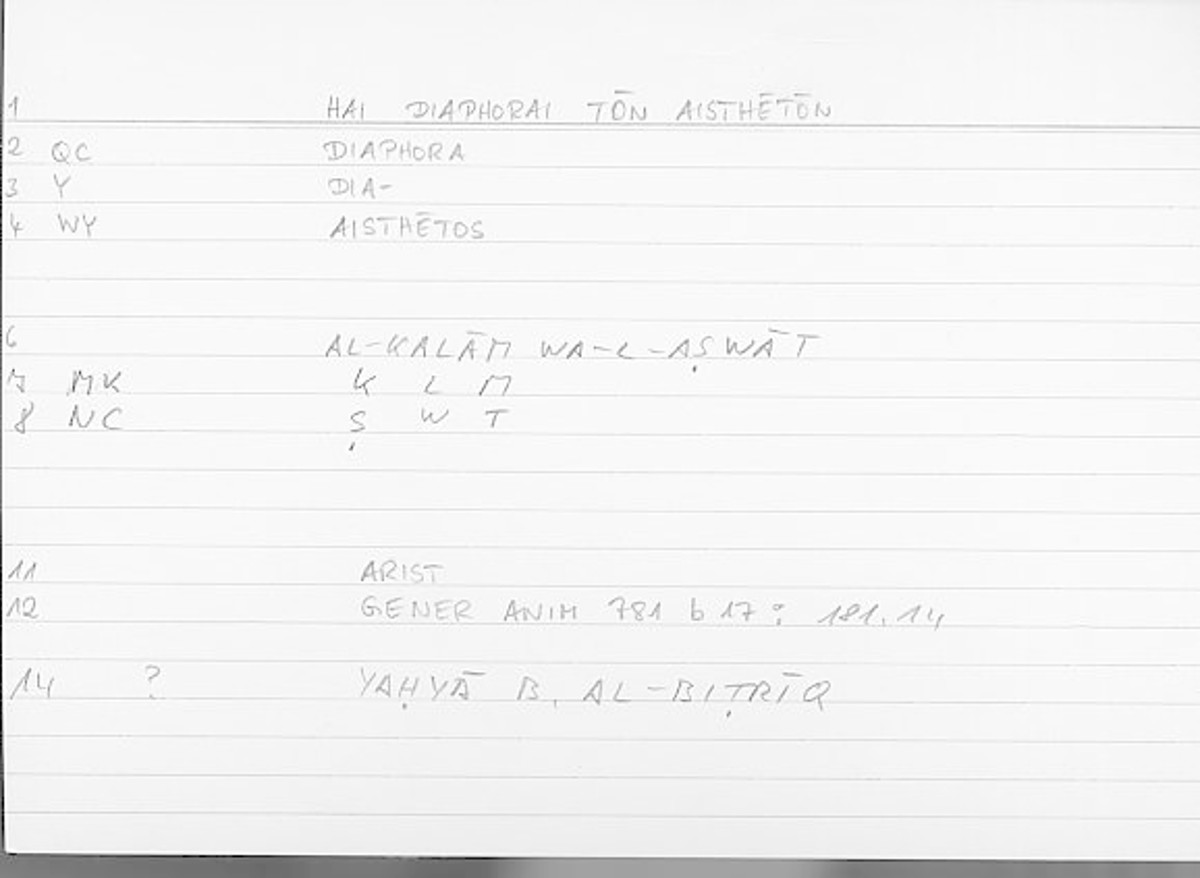 1 HAI DIAPHORAI TŌN AISTHĒTŌN
2 QC DIAPHORA
3 Y DIA-
4 WY AISTHĒTOS
6 AL-KALĀM WA-L-AṢWĀT
7 MK K L M
8 NC Ṣ W T
11 ARIST
12 GENER ANIM 781 b 17 : 181.14
14 ? YAḤYĀ B. AL-BIṬRĪQ